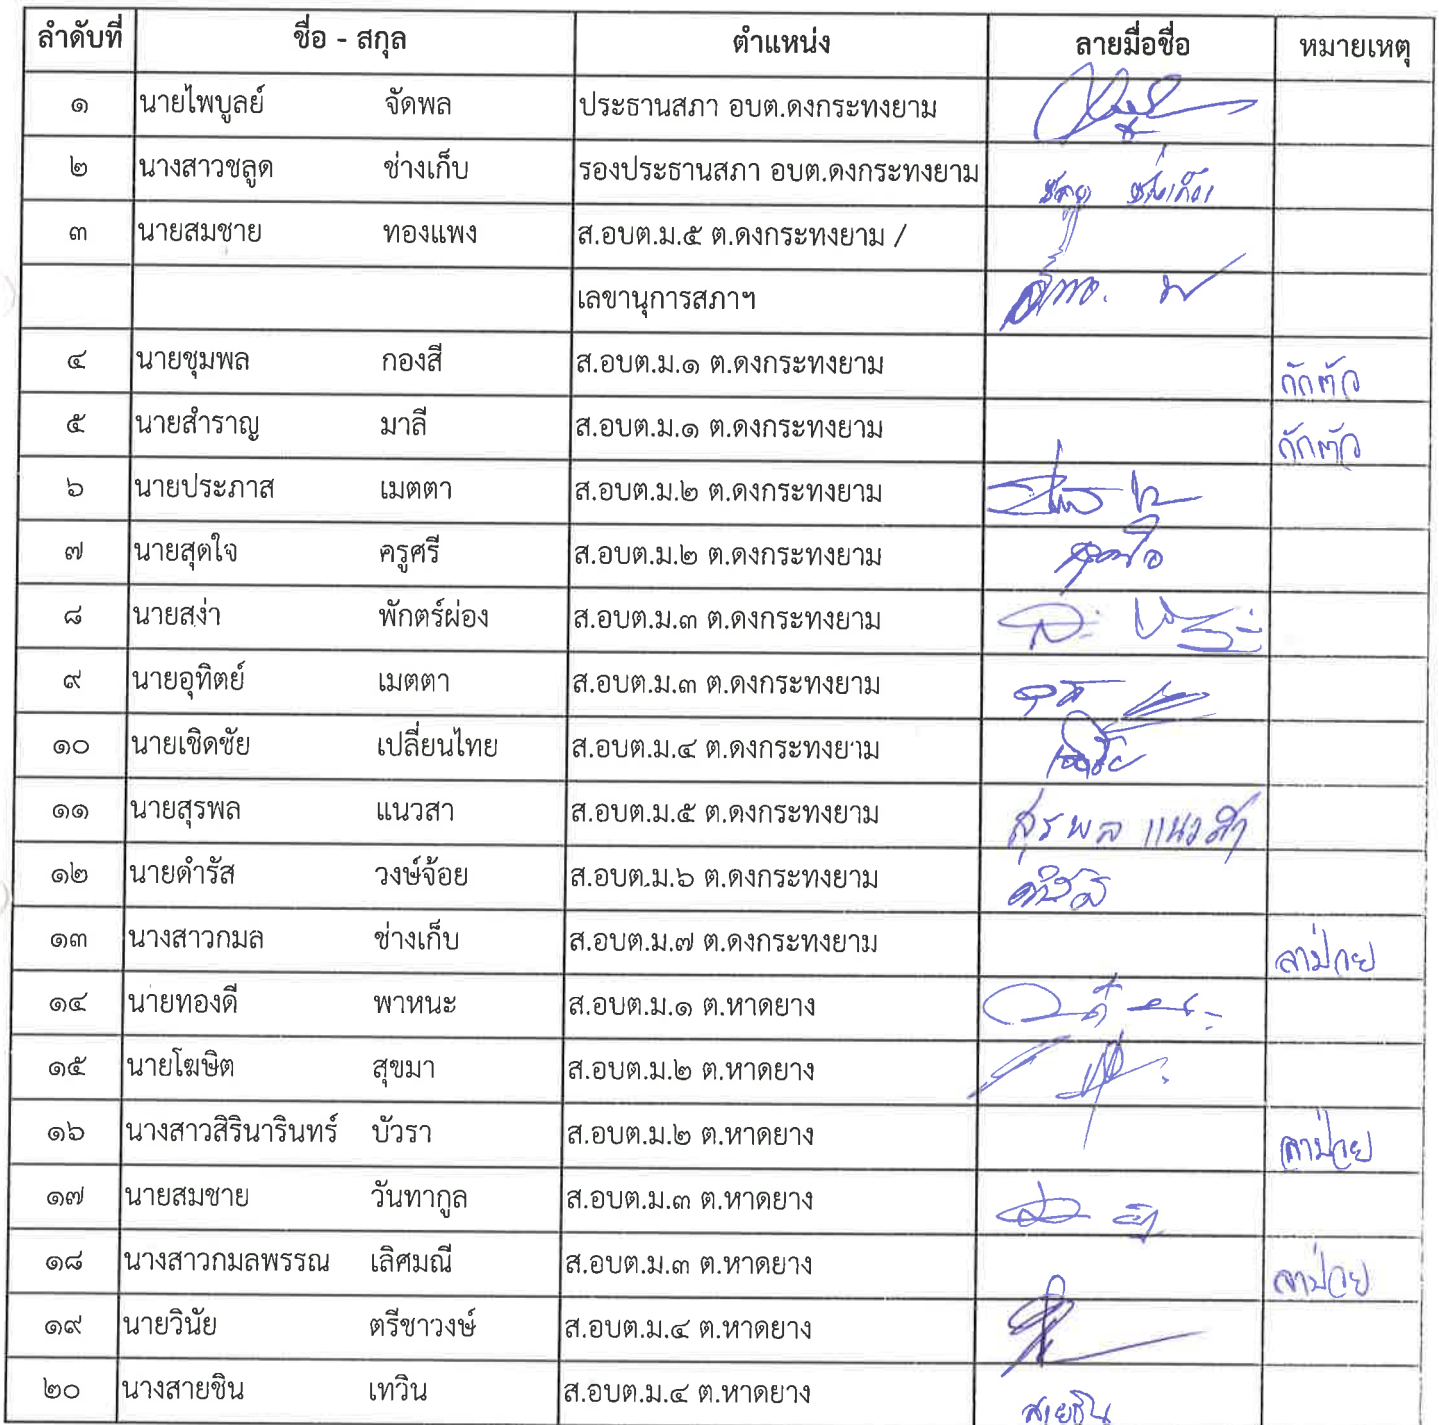 ลำดับที่ ชื่อ - สกุล ตำแหน่ง ลายมือชื่อ หมายเหตุ
๑ นายไพบูลย์ จัดพล ประธานสภา อบต.ดงกระทงยาม
๒ นางสาวชลูด ช่างเก็บ รองประธานสภา อบต.ดงกระทงยาม ชลูด ช่างเก็บ
๓ นายสมชาย ทองแพง ส.อบต.ม.๕ ต.ดงกระทงยาม /
เลขานุการสภาฯ
๔ นายชุมพล กองสี ส.อบต.ม.๑ ต.ดงกระทงยาม กักตัว
๕ นายสำราญ มาลี ส.อบต.ม.๑ ต.ดงกระทงยาม กักตัว
๖ นายประภาส เมตตา ส.อบต.ม.๒ ต.ดงกระทงยาม
๗ นายสุดใจ ครูศรี ส.อบต.ม.๒ ต.ดงกระทงยาม สุดใจ
๘ นายสง่า พักตร์ผ่อง ส.อบต.ม.๓ ต.ดงกระทงยาม
๙ นายอุทิตย์ เมตตา ส.อบต.ม.๓ ต.ดงกระทงยาม
๑๐ นายเชิดชัย เปลี่ยนไทย ส.อบต.ม.๔ ต.ดงกระทงยาม
๑๑ นายสุรพล แนวสา ส.อบต.ม.๕ ต.ดงกระทงยาม สุรพล แนวสา
๑๒ นายดำรัส วงษ์จ้อย ส.อบต.ม.๖ ต.ดงกระทงยาม ดำรัส
๑๓ นางสาวกมล ช่างเก็บ ส.อบต.ม.๗ ต.ดงกระทงยาม ลาป่วย
๑๔ นายทองดี พาหนะ ส.อบต.ม.๑ ต.หาดยาง
๑๕ นายโฆษิต สุขมา ส.อบต.ม.๒ ต.หาดยาง
๑๖ นางสาวสิรินารินทร์ บัวรา ส.อบต.ม.๒ ต.หาดยาง ลาป่วย
๑๗ นายสมชาย วันทากูล ส.อบต.ม.๓ ต.หาดยาง
๑๘ นางสาวกมลพรรณ เลิศมณี ส.อบต.ม.๓ ต.หาดยาง ลาป่วย
๑๙ นายวินัย ตรีชาวงษ์ ส.อบต.ม.๔ ต.หาดยาง
๒๐ นางสายชิน เทวิน ส.อบต.ม.๔ ต.หาดยาง สายชิน